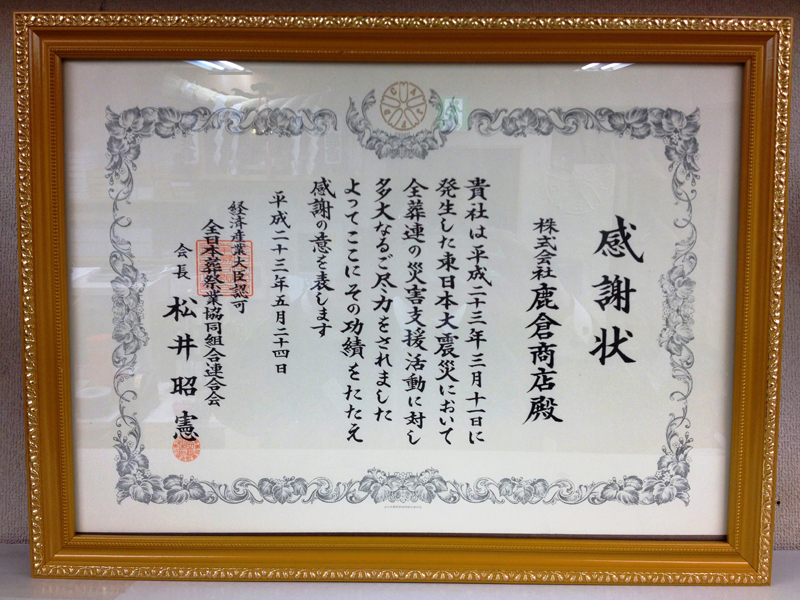 感謝状
株式会社鹿倉商店殿
貴社は平成二十三年三月十一日に
発生した東日本大震災において
全葬連の災害支援活動に対し
多大なるご尽力をされました
よってここにその功績をたたえ
感謝の意を表します
平成二十三年五月二十四日
経済産業大臣認可
全日本葬祭業協同組合連合会
会長 松井昭憲